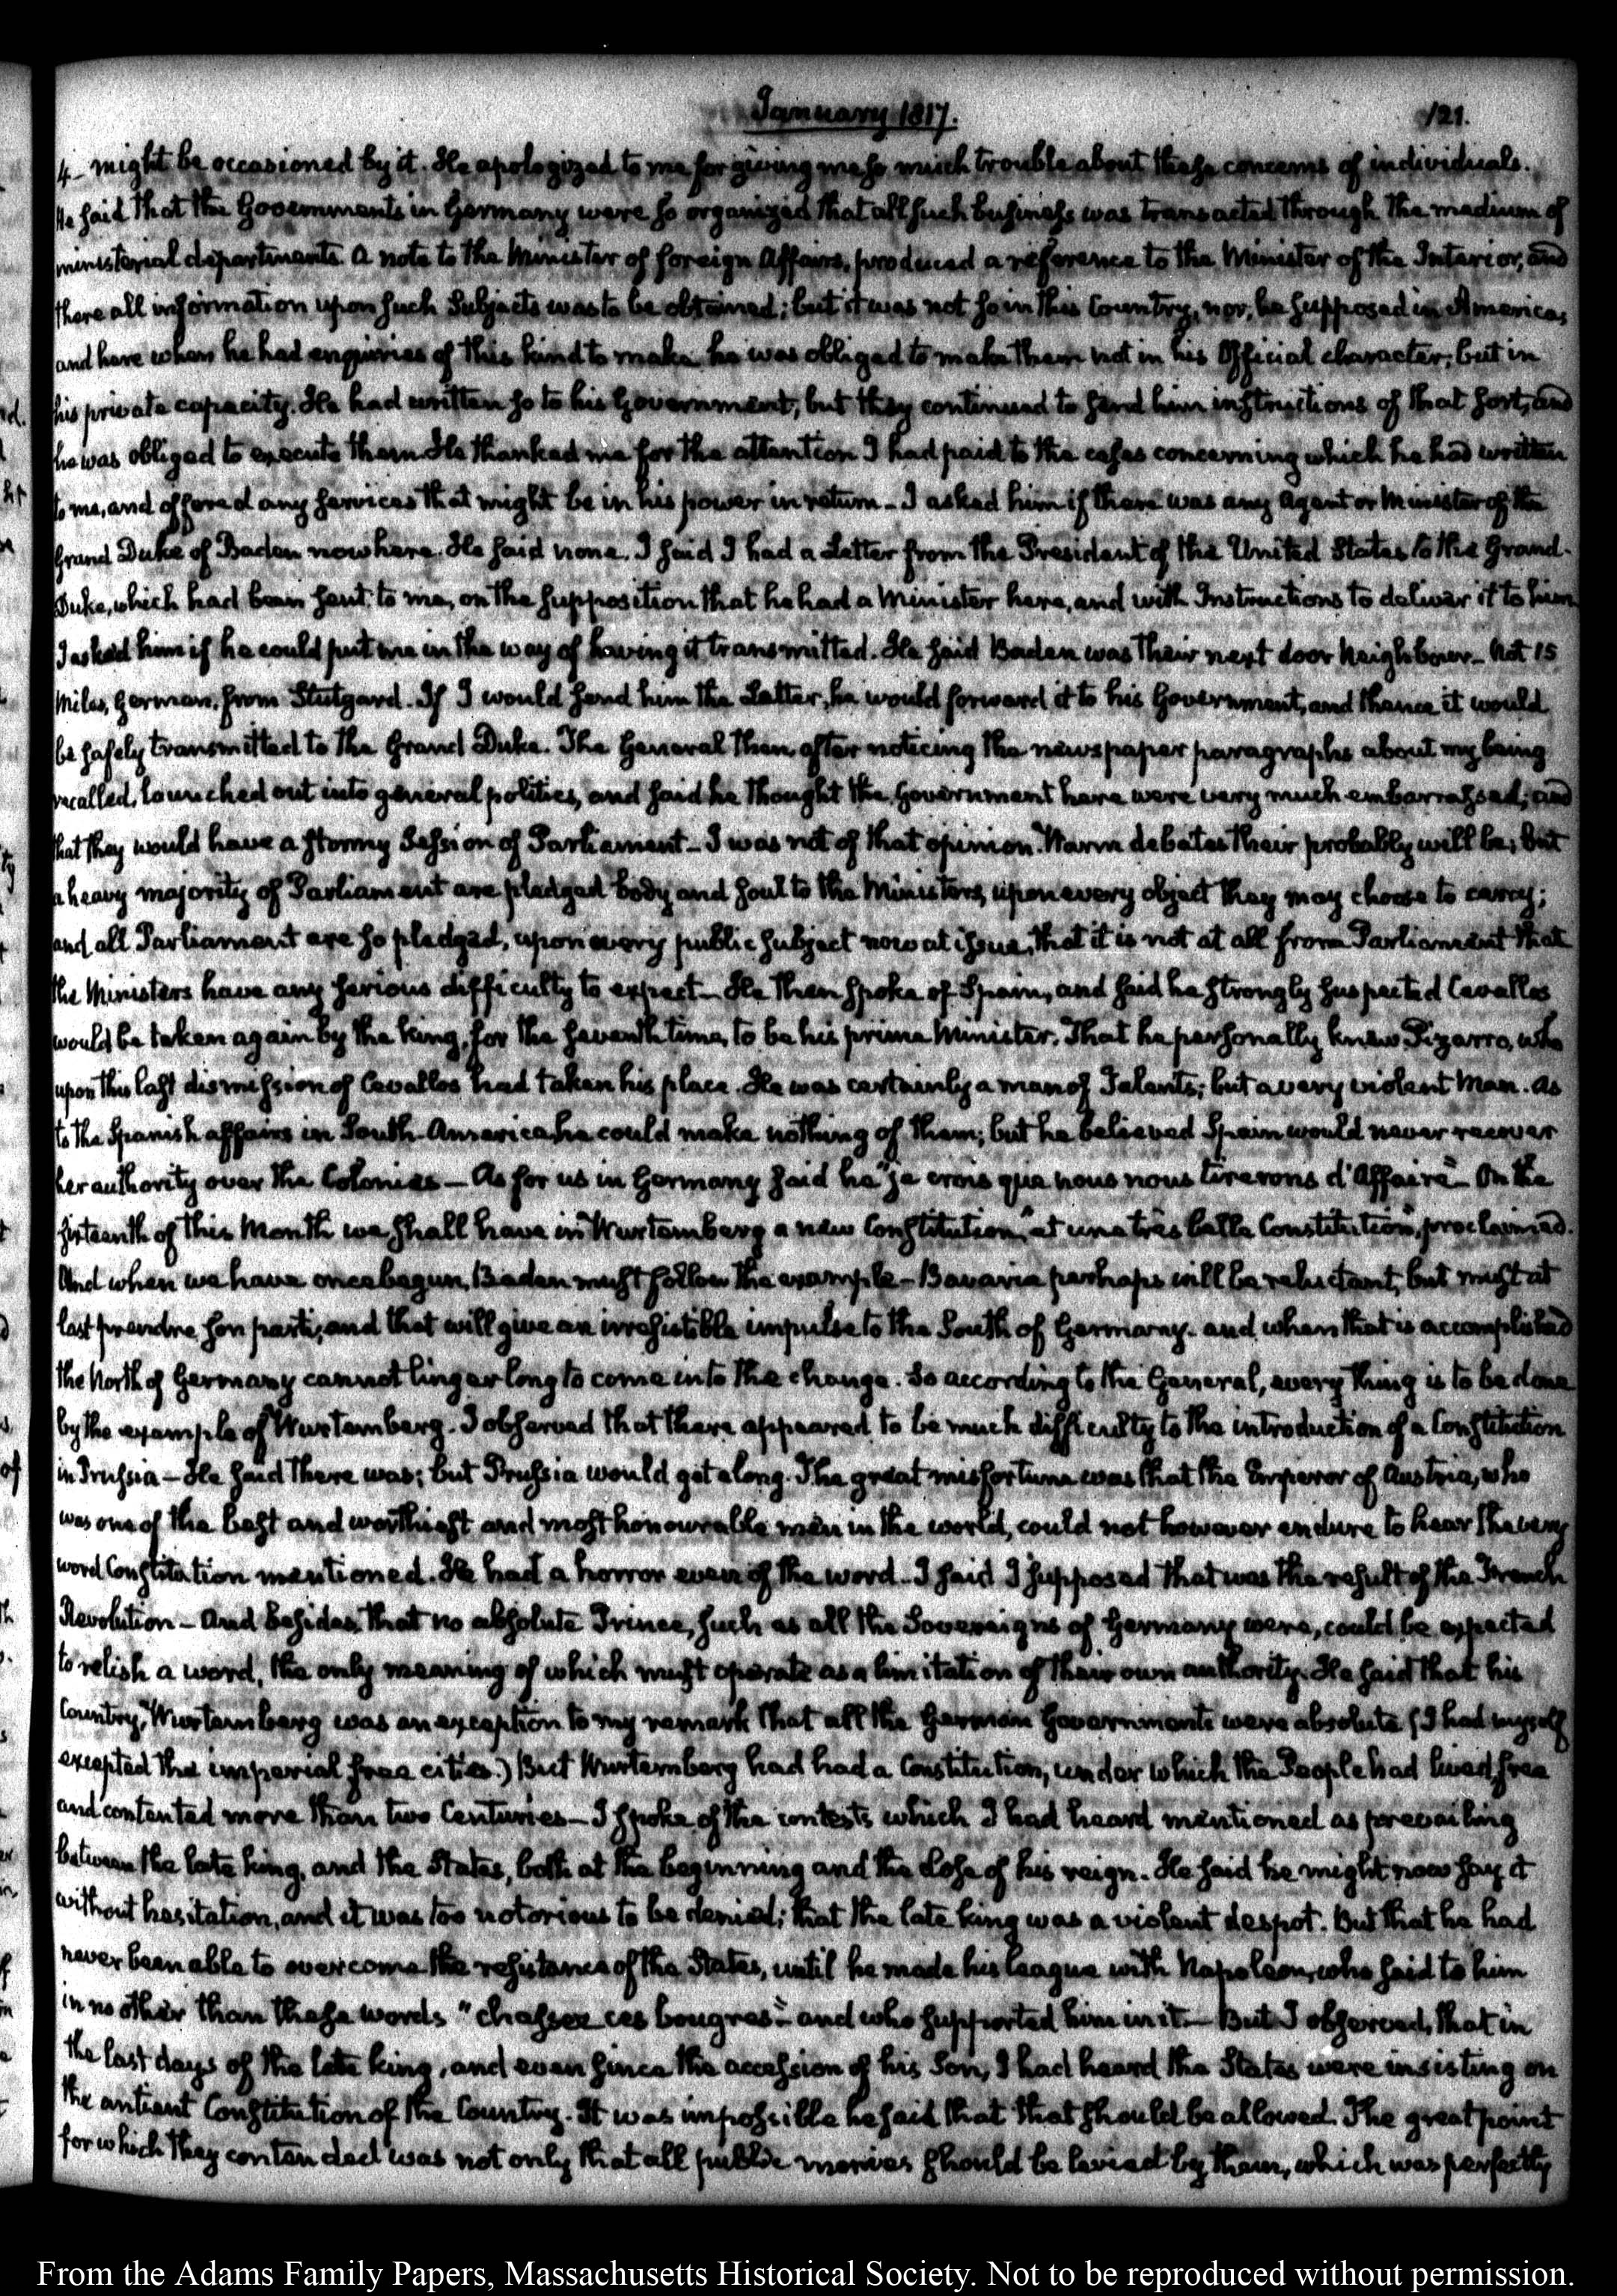 January 1817.
121.
4— might be occasioned by it. He apologized to me for giving me so much trouble about these concerns of individuals.
He said that the Governments in Germany were so organized that all such business was transacted through the medium of
ministerial departments. A note to the Minister of foreign Affairs, produced a reference to the Minister of the Interior, and
there all information upon such Subjects was to be obtained; but it was not so in this Country, nor, he supposed in America,
and here when he had enquiries of this kind to make he was obliged to make them not in his Official character; but in
his private capacity. He had written so to his Government, but they continued to send him instructions of that sort, and
he was obliged to execute them. He thanked me for the attention I had paid to the cases concerning which he had written
to me, and offered any services that might be in his power in return— I asked him if there was any Agent or Minister of the
Grand Duke of Baden now here. He said none. I said I had a Letter from the President of the United States to the Grand-
Duke, which had been sent to me, on the supposition that he had a Minister here, and with Instructions to deliver it to him.
I asked him if he could put me in the way of having it transmitted. He said Baden was their next door Neighbour— Not 15
Miles, German, from Stutgard. If I would send him the Letter, he would forward it to his Government, and thence it would
be safely transmitted to the Grand Duke. The General then, after noticing the newspaper paragraphs about my being
recalled, launched out into general politics, and said he thought the Government here were very much embarrassed; and
that they would have a stormy Session of Parliament— I was not of that opinion. Warm debates their probably will be; but
a heavy majority of Parliament are pledged body and soul to the Ministers, upon every object they may choose to carry;
and all Parliament are so pledged, upon every public subject now at issue, that it is not at all from Parliament that
the Ministers have any serious difficulty to expect— He then spoke of Spain, and said he strongly suspected Cevallos
would be taken again by the king, for the seventh time, to be his prime Minister. That he personally knew Pizarro, who
upon this last dismission of Cevallos had taken his place. He was certainly a man of Talents; but a very violent Man. As
to the Spanish affairs in South-America, he could make nothing of them; but he believed Spain would never recover
her authority over the Colonies— As for us in Germany said he "je crois que nous nous tirerons d'Affaire"— On the
sixteenth of this Month we shall have in Wurtemberg a new Constitution, "et une très belle Constitution", proclaimed.
And when we have once begun, Baden must follow the example— Bavaria perhaps will be reluctant, but must at
last prendre son parti; and that will give an irresistible impulse to the South of Germany. and when that is accomplished
the North of Germany cannot linger long to come into the change. So according to the General, every thing is to be done
by the example of Wurtemberg. I observed that there appeared to be much difficulty to the introduction of a Constitution
in Prussia— He said there was; but Prussia would get along. The great misfortune was that the Emperor of Austria, who
was one of the best and worthiest and most honourable men in the world, could not however endure to hear the very
word Constitution mentioned. He had a horror even of the word. I said I supposed that was the result of the French
Revolution— And besides, that no absolute Prince, such as all the Sovereigns of Germany were, could be expected
to relish a word, the only meaning of which must operate as a limitation of their own authority. He said that his
Country, Wurtemberg was an exception to my remark that all the German Governments were absolute (I had myself
excepted the imperial free cities.) But Wurtemberg had had a Constitution, under which the People had lived, free
and contented more than two Centuries— I spoke of the contests which I had heard mentioned as prevailing
between the late king, and the States, both at the beginning and the close of his reign. He said he might now say it
without hesitation, and it was too notorious to be denied; that the late king was a violent despot. But that he had
never been able to overcome the resistance of the States, until he made his league with Napoleon, who said to him
in no other than these words "chassez ces bougres"— and who supported him in it.— But I observed, that in
the last days of the late king, and even since the accession of his Son, I had heard the States were insisting on
the antient Constitution of the Country. It was impossible he said that that should be allowed. The great point
for which they contended was not only that all public monies should be levied by them, which was perfectly
From the Adams Family Papers, Massachusetts Historical Society. Not to be reproduced without permission.